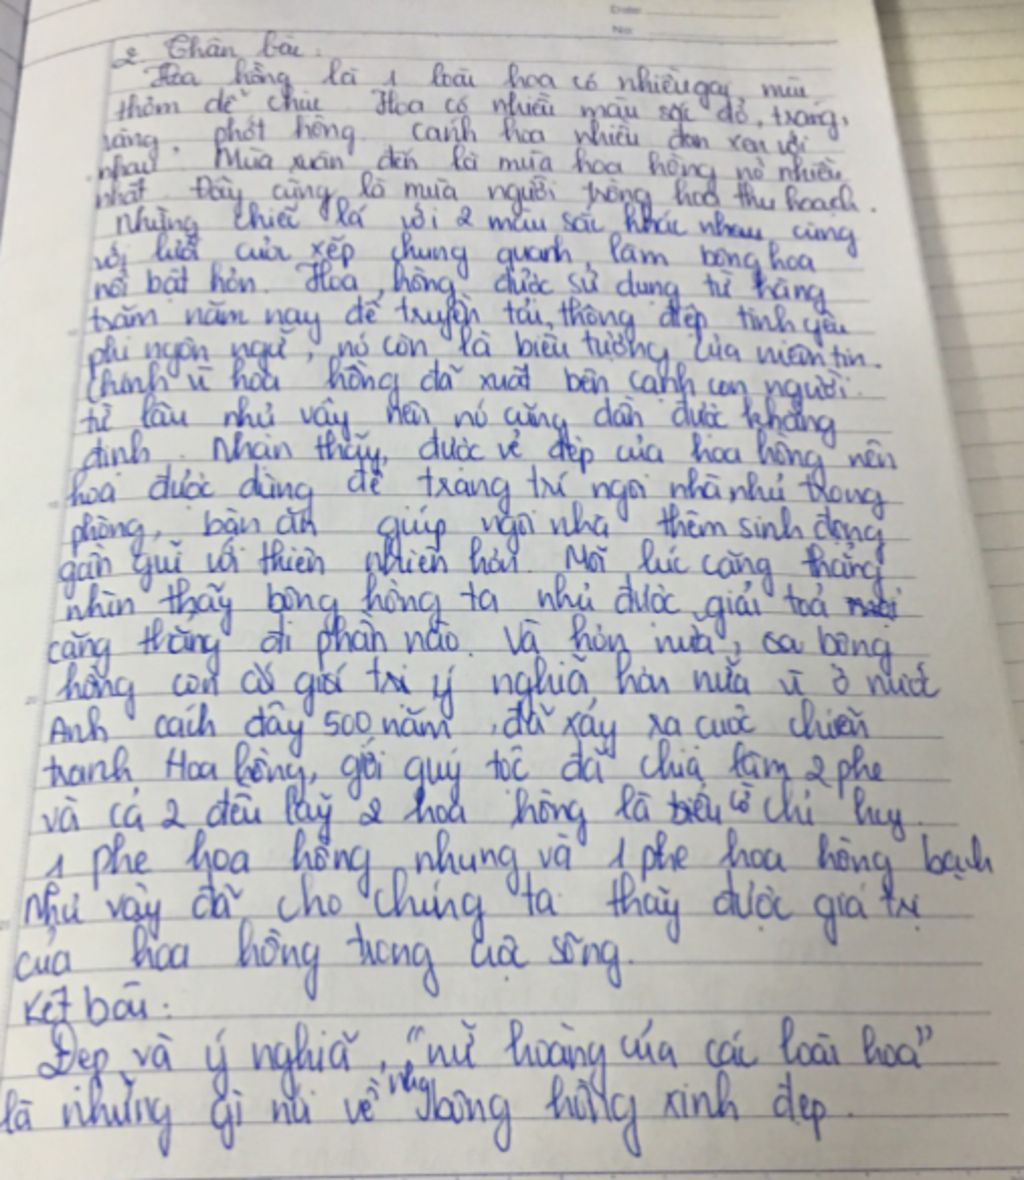 Date
No
2. Thân bài.
Hoa hồng là 1 loài hoa có nhiều gai, mùi
thơm dễ chịu. Hoa có nhiều màu sắc đỏ, trắng,
vàng, phớt hồng. cánh hoa nhiều đan xen với
nhau. Mùa xuân đến là mùa hoa hồng nở nhiều
nhất. Đây cũng là mùa người trồng hoa thu hoạch.
Những chiếc lá với 2 màu sắc khác nhau, cùng
với lưỡi cưa xếp chung quanh, làm bông hoa
nổi bật hơn. Hoa hồng được sử dụng từ hàng
trăm năm nay để truyền tải thông điệp tình yêu
phi ngôn ngữ, nó còn là biểu tượng của niềm tin.
Chính vì hoa hồng đã xuất bên cạnh con người
từ lâu như vậy nên nó cũng dần được khẳng
định. Nhận thấy được vẻ đẹp của hoa hồng nên
hoa được dùng để trang trí ngôi nhà như trong
phòng, bàn ăn giúp ngôi nhà thêm sinh động
gần gũi với thiên nhiên hơn. Mỗi lúc căng thẳng
nhìn thấy bông hồng ta như được giải toả
căng thẳng đi phần nào. Và hơn nữa, bông
hồng còn có giá trị ý nghĩa hơn nữa vì ở nước
Anh cách đây 500 năm, đã xảy ra cuộc chiến
tranh Hoa hồng, giới quý tộc đã chia làm 2 phe
và cả 2 đều lấy 2 hoa hồng là cờ chỉ huy.
1 phe hoa hồng nhung và 1 phe hoa hồng bạch
Như vậy đã cho chúng ta thấy được giá trị
của hoa hồng trong cuộc sống.
Kết bài:
Đẹp và ý nghĩa, "nữ hoàng của các loài hoa"
là những gì nói về những bông hồng xinh đẹp.